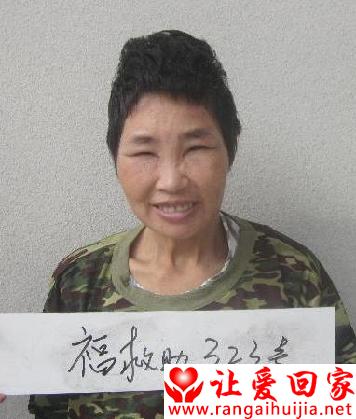 福救助323号
让爱回家
www.rangaihuijia.net